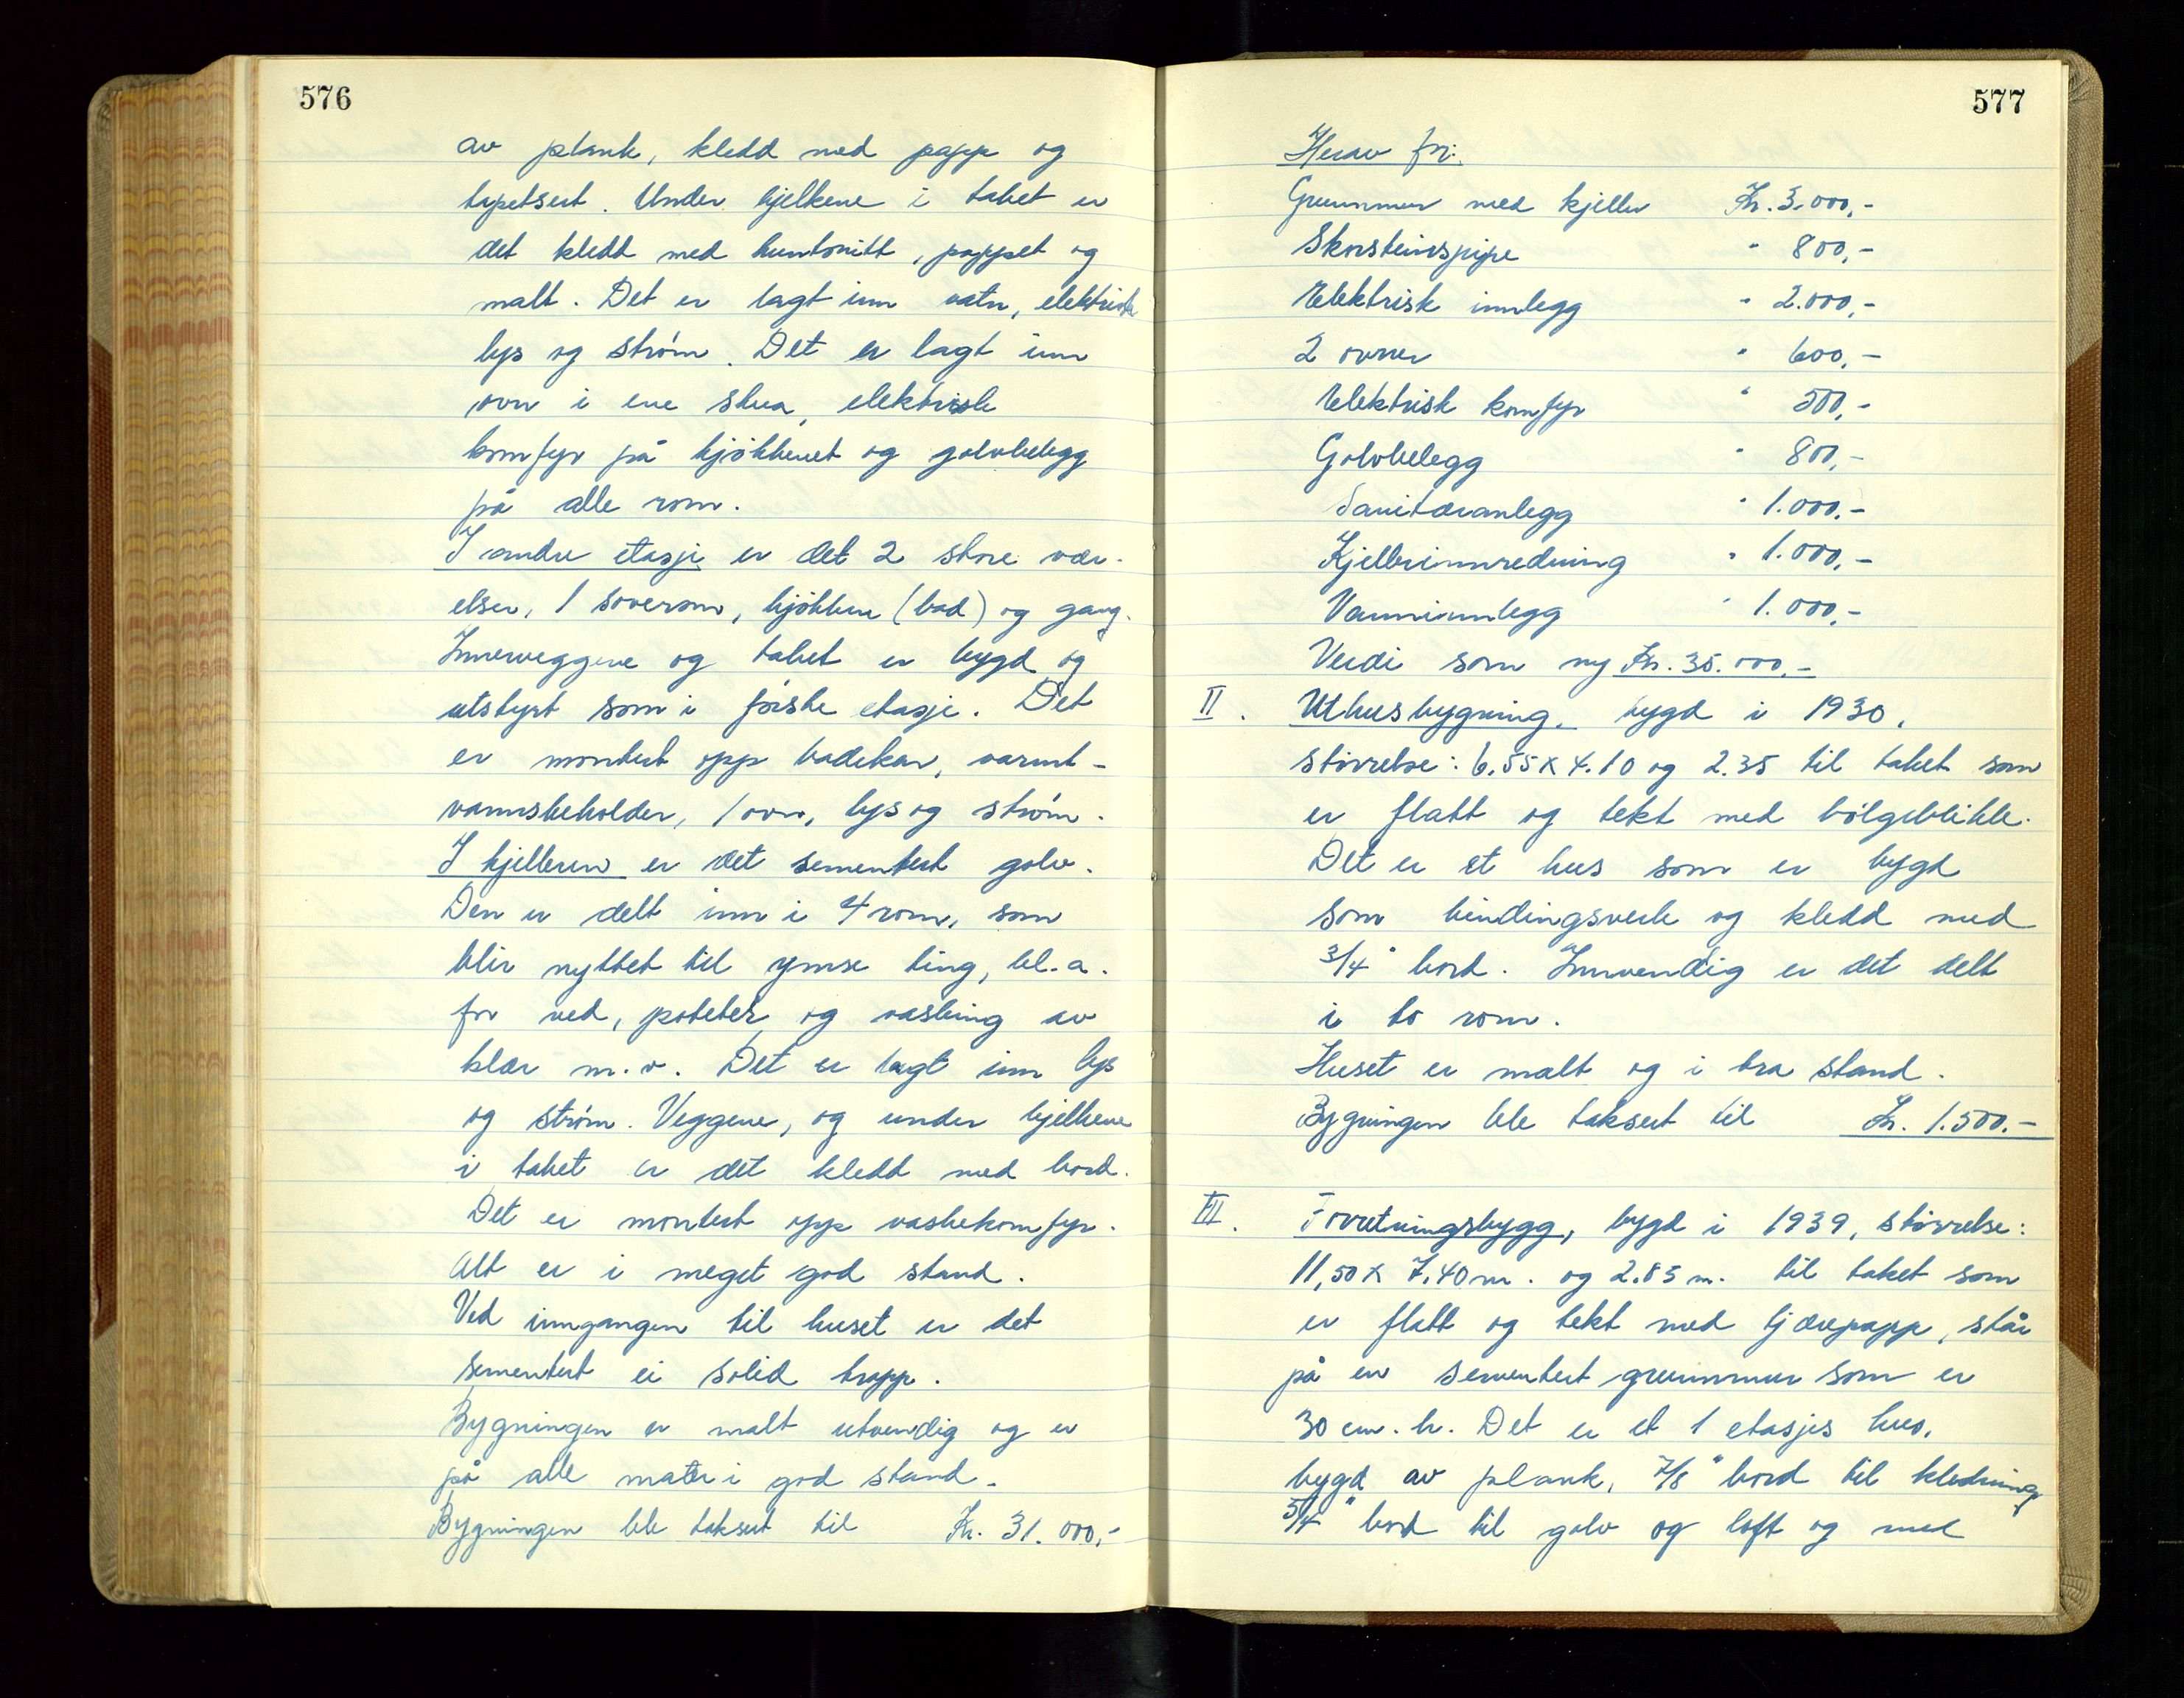 576
av plank, kledd med papp og
tapetsert. Under bjelkene i taket er
det kledd med huntonitt, pappet og
malt. Det er lagt inn vatn, elektrisk
lys og strøm. Det er lagt inn
ovn i ene stua, elektrisk
komfyr på kjøkkenet og golvbelegg
på alle rom.
I andre etasje er det 2 store vær-
elser, 1 soverom, kjøkken (bad) og gang.
Innerveggene og taket er bygd og
utstyrt som i første etasje. Det
er montert opp badekar, varmt-
vannsbeholder, 1 ovn, lys og strøm.
I kjelleren er det sementert golv.
Den er delt inn i 4 rom, som
blir nyttet til ymse ting, bl.a.
for ved, poteter og vasking av
klær m.v. Det er lagt inn lys
og strøm. Veggene, og under bjelkene
i taket er det kledd med bord.
Det er montert opp vaskekomfyr.
Alt er i meget god stand.
Ved inngangen til huset er det
sementert ei solid trapp.
Bygningen er malt utvendig og er
på alle måter i god stand.
Bygningen ble taksert til Kr. 31.000,-
577
Herav for:
Grunnmur med kjeller Kr. 3.000,-
Skorsteinspipe " 800,-
Elektrisk innlegg " 2.000,-
2 ovner " 600,-
Elektrisk komfyr " 500,-
Golvbelegg " 800,-
Sanitæranlegg " 1.000.-
Kjellerinnredning " 1.000,-
Vanninnlegg " 1.000,-
Verdi som ny Kr. 35.000.-
II. Uthusbygning, bygd i 1930.
størrelse: 6.55 x 4.10 og 2.35 til taket som
er flatt og tekt med bølgeblikk.
Det er et hus som er bygd
som bindingsverk og kledd med
3/4" bord. Innvendig er det delt
i to rom.
Huset er malt og i bra stand.
Bygningen ble taksert til Kr. 1.500.-
III. Forretningsbygg, bygd i 1939, størrelse:
11,50 x 7.40 m. og 2.85 m. til taket som
er flatt og tekt med tjærepapp, står
på en sementert grunnmur som er
30 cm. h. Det er et 1 etasjes hus,
bygd av plank, 7/8" bord til kledning
5/4" bord til golv og loft og med